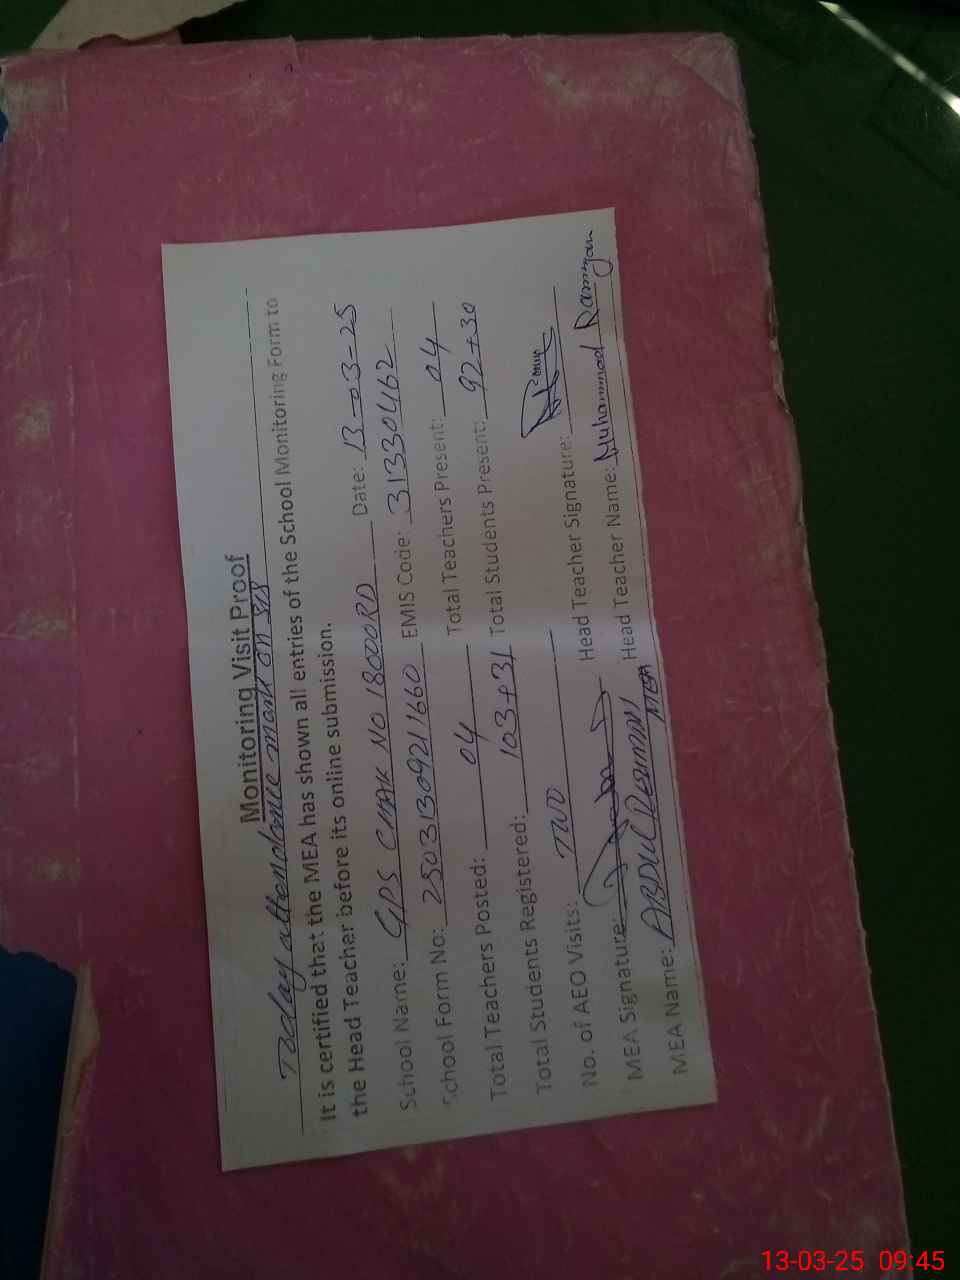 Monitoring Visit Proof
Today attendance mark on SIS
It is certified that the MEA has shown all entries of the School Monitoring Form to
the Head Teacher before its online submission.
School Name: GPS CHAK NO 18000RD Date: 13-03-25
School Form No: 25031309211660 EMIS Code: 31330462
Total Teachers Posted: 04 Total Teachers Present: 04
Total Students Registered: 103+31 Total Students Present: 92+30
No. of AEO Visits: TWO Head Teacher Signature:
MEA Signature: Head Teacher Name: Muhammad Ramzan
MEA Name: ABDUL REHMAN MEA
13-03-25 09:45